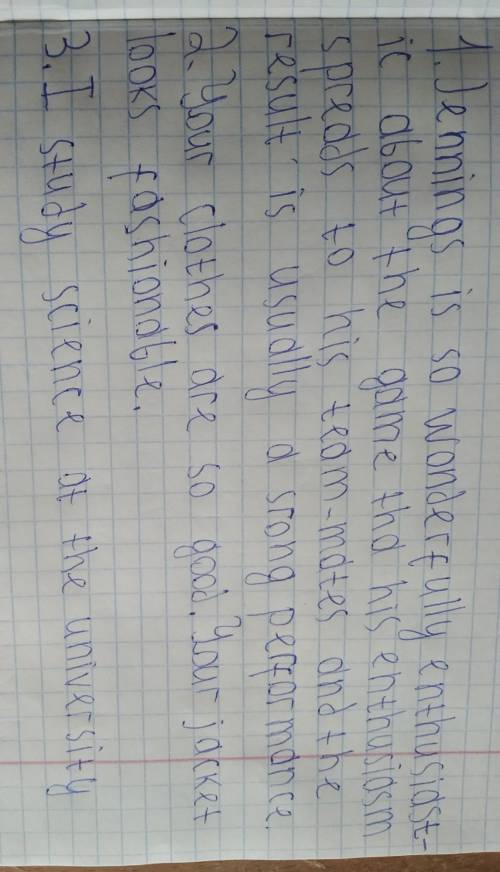 1. Jennings is so wonderfully enthusiast-
ic about the game tha his enthusiasm
spreads to his team-mates and the
result is usually a strong performance.
2. Your clothes are so good. Your jacket
looks fashionable.
3. I study science at the university